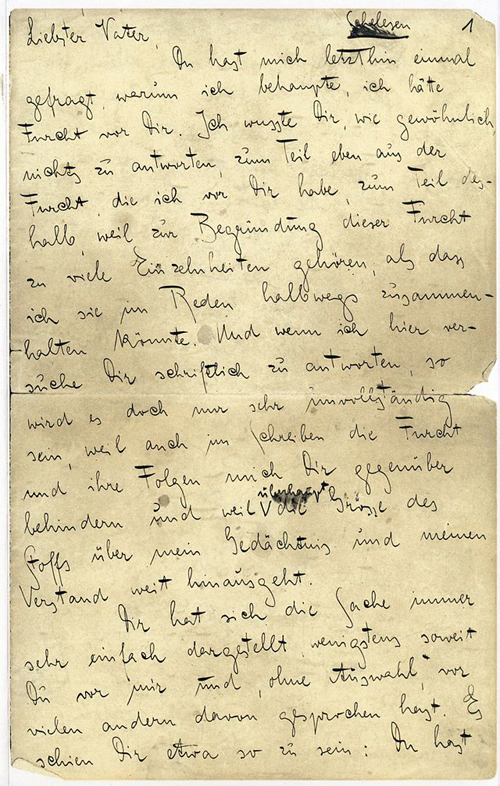 Schelesen 1
Liebster Vater,
Du hast mich letzthin einmal
gefragt, warum ich behaupte, ich hätte
Furcht vor Dir. Ich wusste Dir, wie gewöhnlich
nichts zu antworten, zum Teil eben aus der
Furcht, die ich vor Dir habe, zum Teil des-
halb, weil zur Begründung dieser Furcht
zu viele Einzelnheiten gehören, als dass
ich sie im Reden halbwegs zusammen-
halten könnte. Und wenn ich hier ver-
suche Dir schriftlich zu antworten, so
wird es doch nur sehr unvollständig
sein, weil auch im Schreiben die Furcht
und ihre Folgen mich Dir gegenüber
behindern und weil die Grösse des
Stoffs über mein Gedächtnis und meinen
Verstand weit hinausgeht.
Dir hat sich die Sache immer
sehr einfach dargestellt, wenigstens soweit
Du vor mir und, ohne Auswahl, vor
vielen andern davon gesprochen hast. Es
schien Dir etwa so zu sein: Du hast